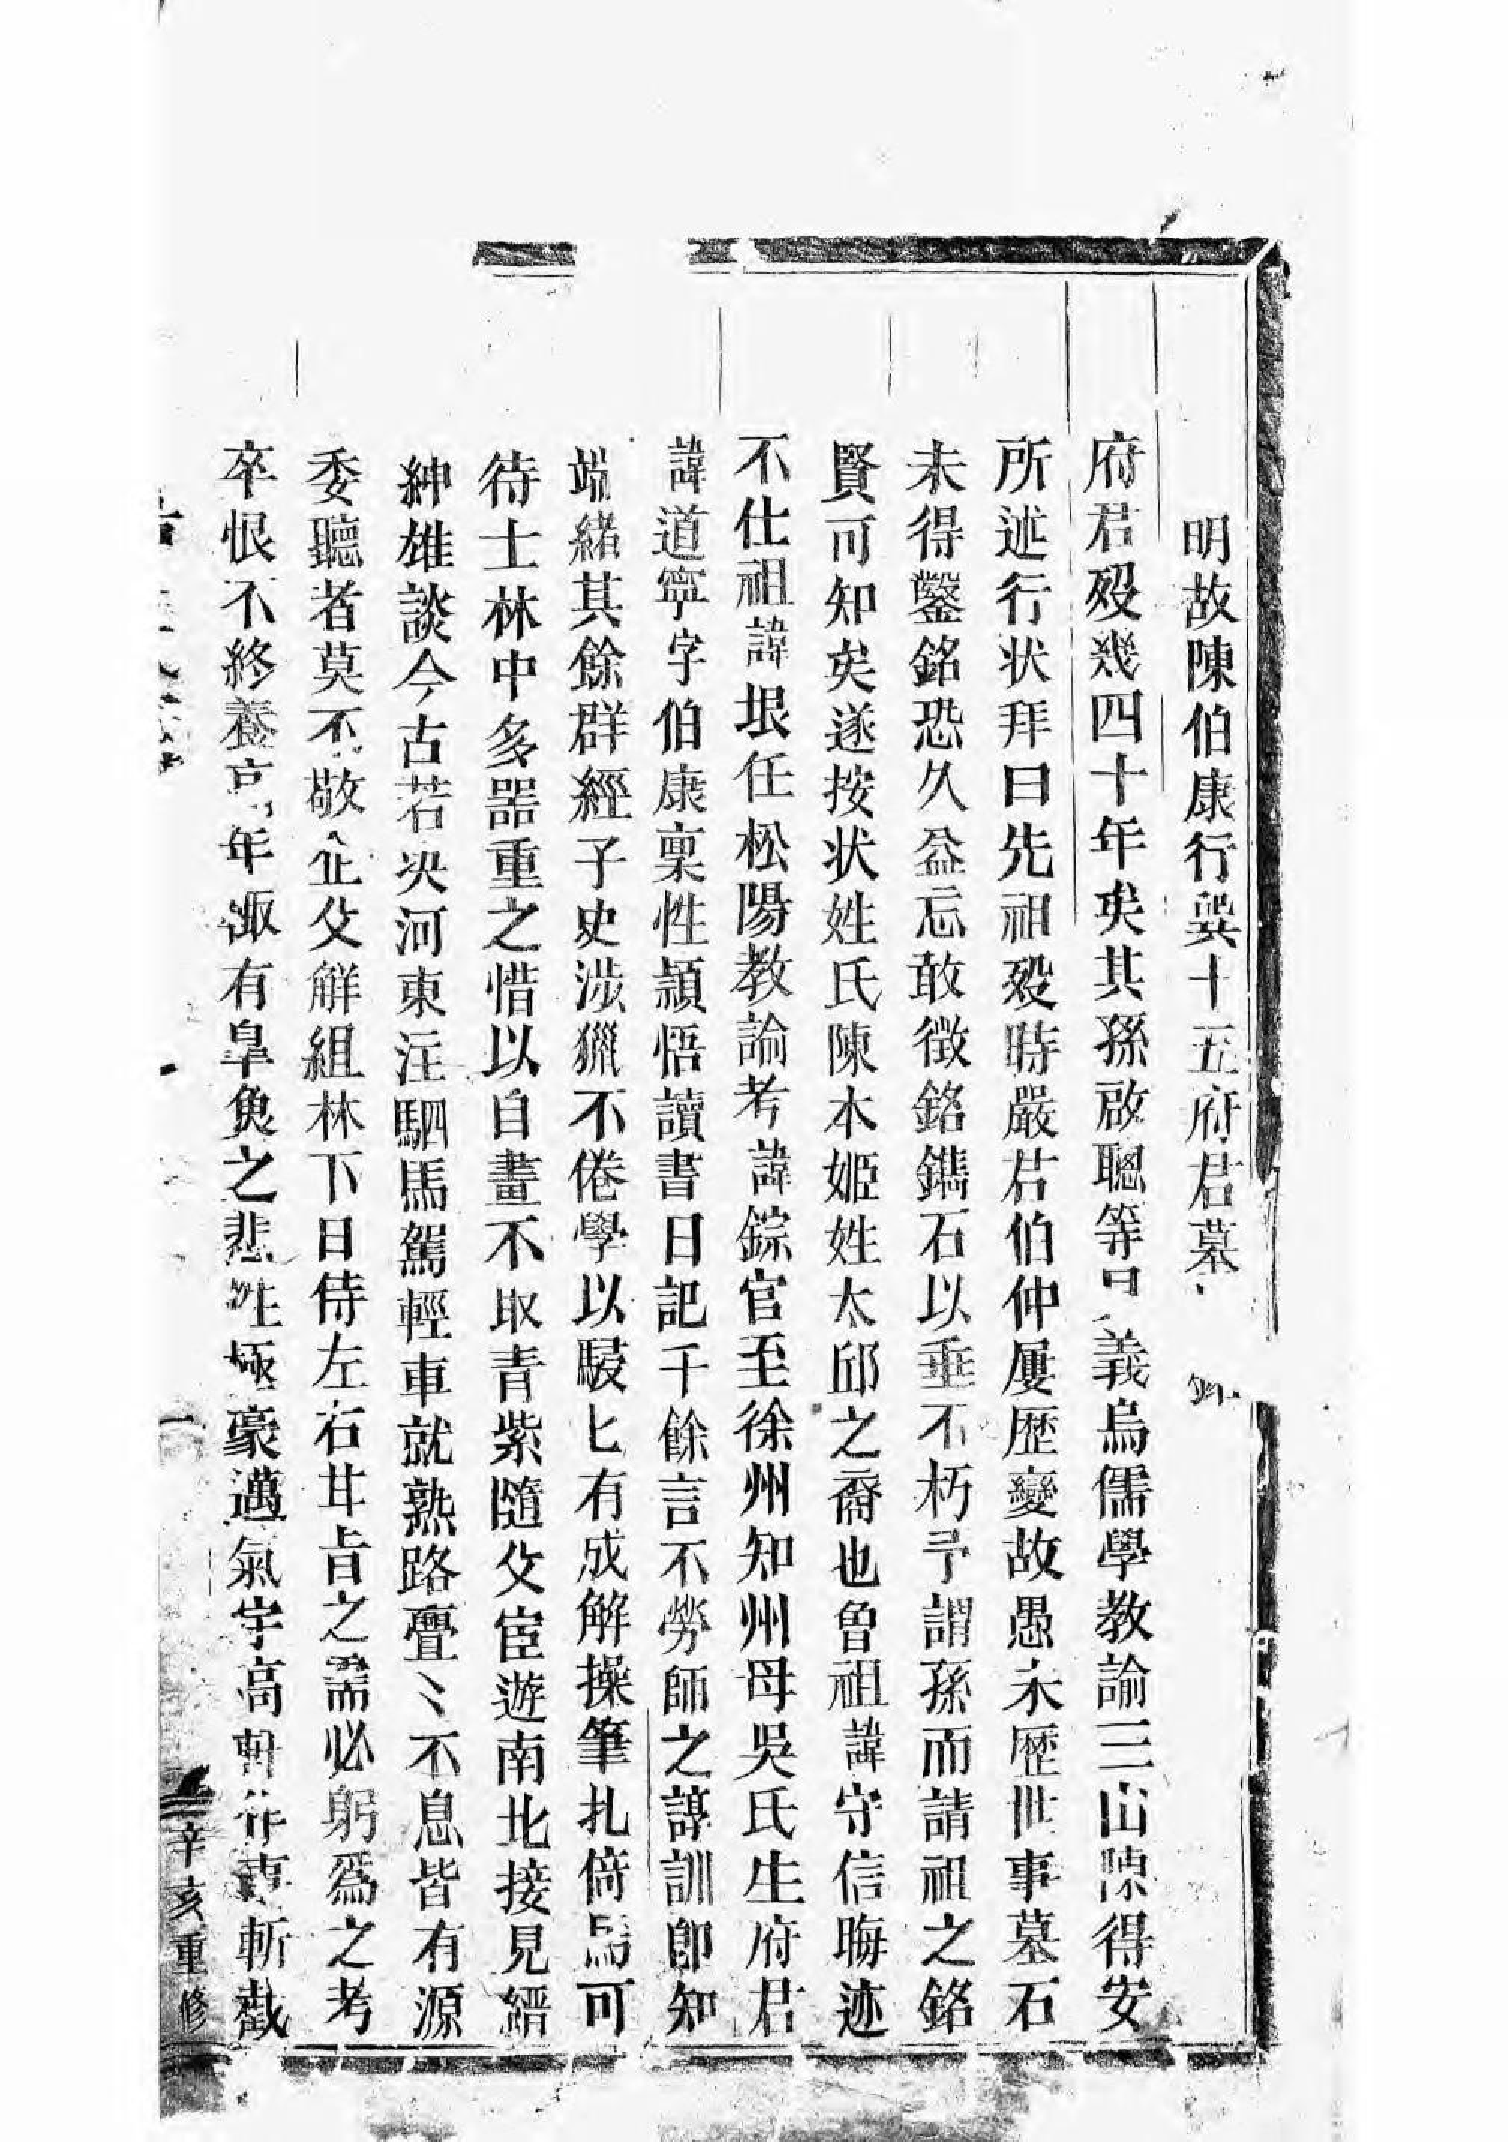 明故陳伯康行巽十五府君墓
府君歿幾四十年矣其孫啟聰等曰義烏儒學教諭三山陳得安
所述行状拜曰先祖歿時嚴君伯仲屢歴變故愚未歴世事墓石
未得鑿銘恐久益忘敢徵銘鐫石以垂不朽予謂孫而請祖之銘
賢可知矣遂按状姓氏陳本姬姓太邱之裔也曾祖諱守信晦迹
不仕祖諱垠任松陽教諭考諱錝官至徐州知州母吳氏生府君
諱道寧字伯康稟性穎悟讀書日記千餘言不勞師之諄訓即知
端緒其餘群經子史涉獵不倦學以駸匕有成解操筆扎倚馬可
待士林中多噐重之惜以自畫不取青紫隨父宦遊南北接見縉
紳雄談今古若决河東注駟馬駕輕車就熟路亹〻不息皆有源
委聽者莫不敬企父觧組林下日侍左右甘旨之需必躬爲之考
卒恨不終養高年溆有臯魚之悲性極豪邁氣宇高斬截
辛亥重修